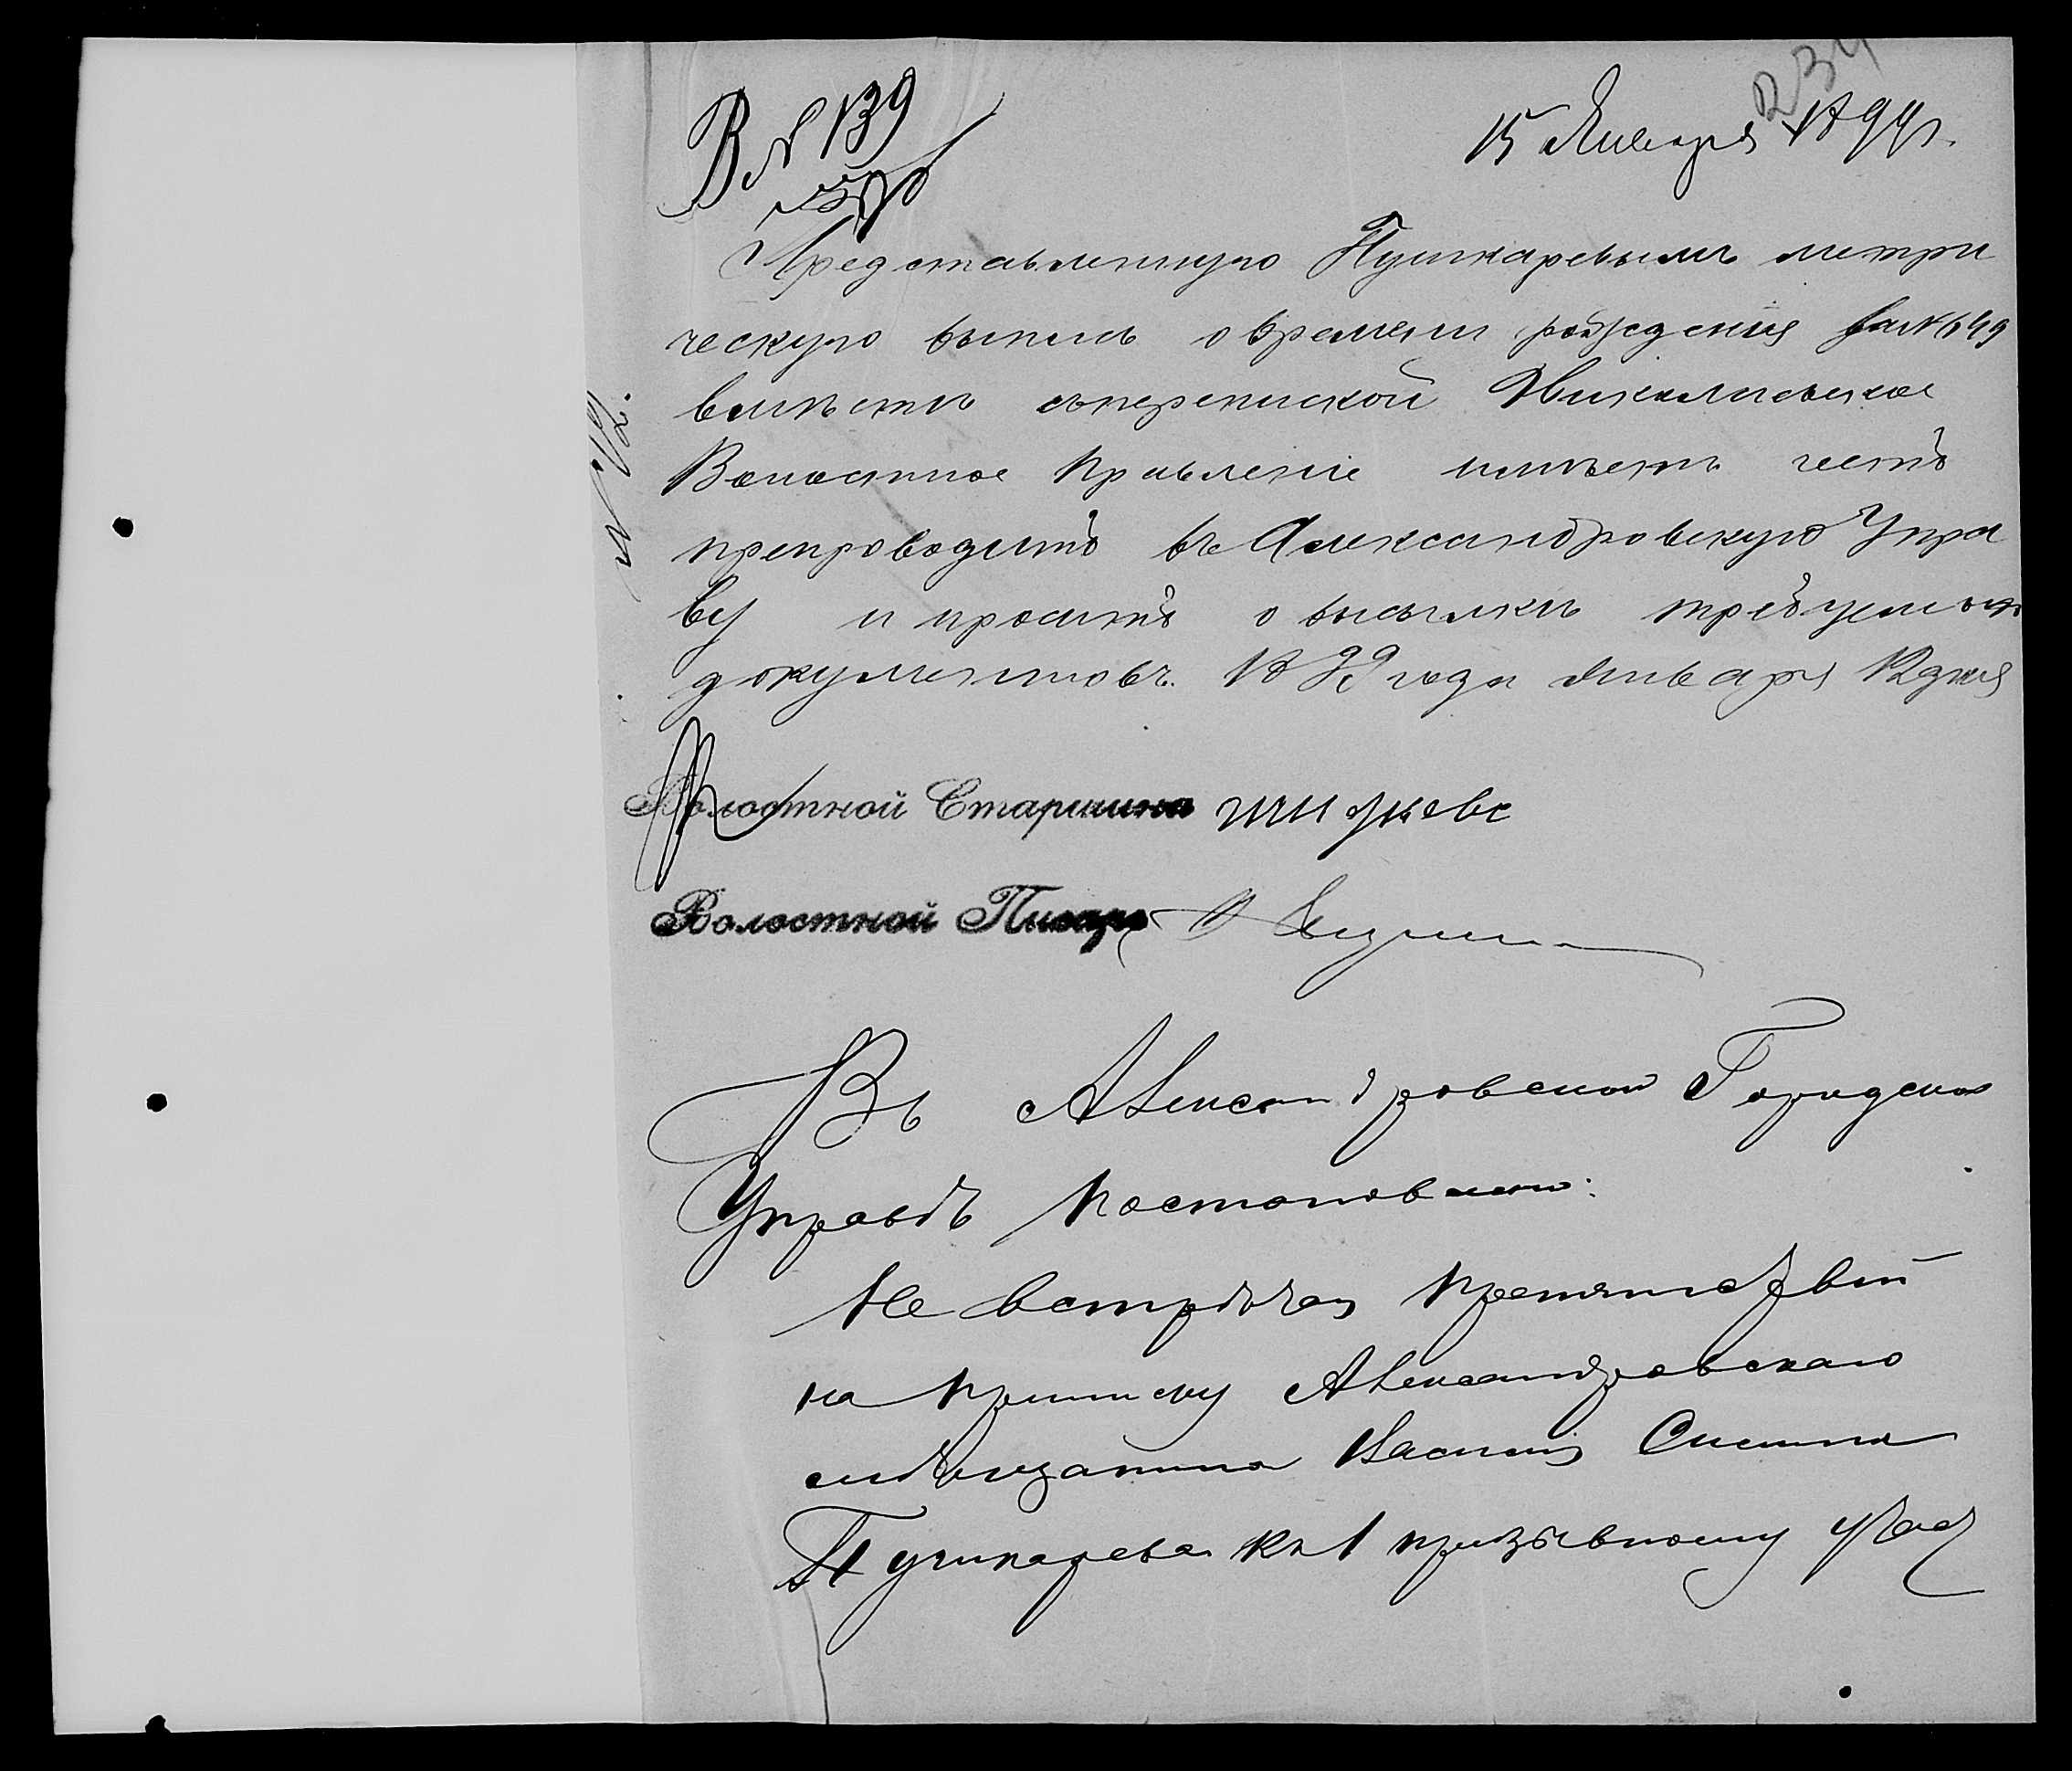 В № 139
15 Января 1899 г.
234
Представленную Пушкаревымъ метри
ческую выпись о времени рожденія за № 649
вмѣстѣ съ перепиской Николаевское
Волостное Правленіе имѣетъ честь
препроводить въ Александровскую Упра
ву и просить о высылкѣ требуемыхъ
документовъ. 1899 года Января 12 дня
№ 112.
Волостной Старшина
Волостной Писарь
Въ Александровской Городской
Управѣ Постановлено:
Не встрѣчая препятствій
на приписку Александровскаго
мѣщанина Василія
Пушкарева къ 1 призывному учас